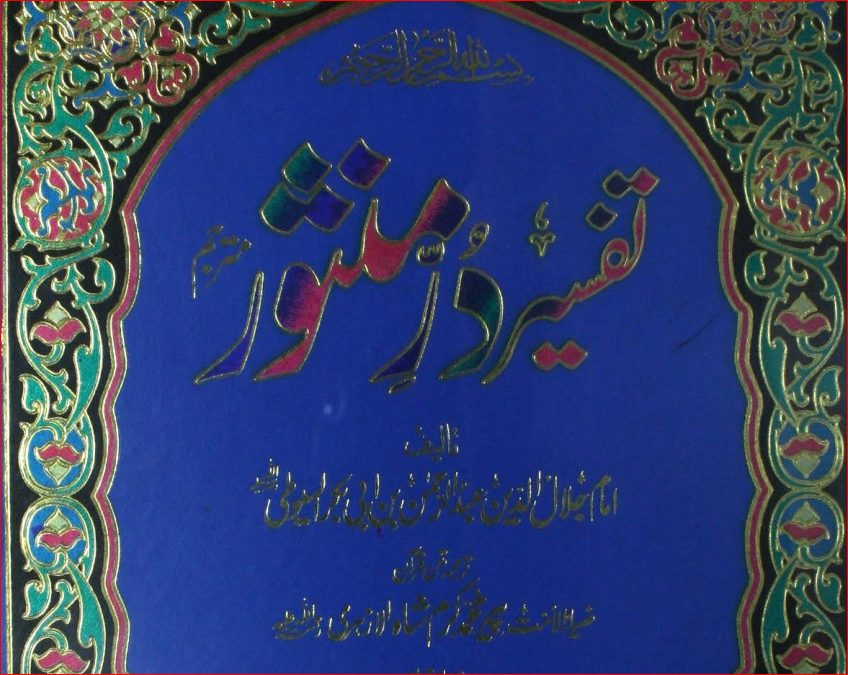 بسم الله الرحمن الرحيم
تفسیر دُرِّ منثور مترجم
تالیف
امام جلال الدین عبدالرحمٰن بن ابی بکر السیوطی
ترجمہ متن قرآن
ضیاء الامت پیر محمد کرم شاہ الازہری